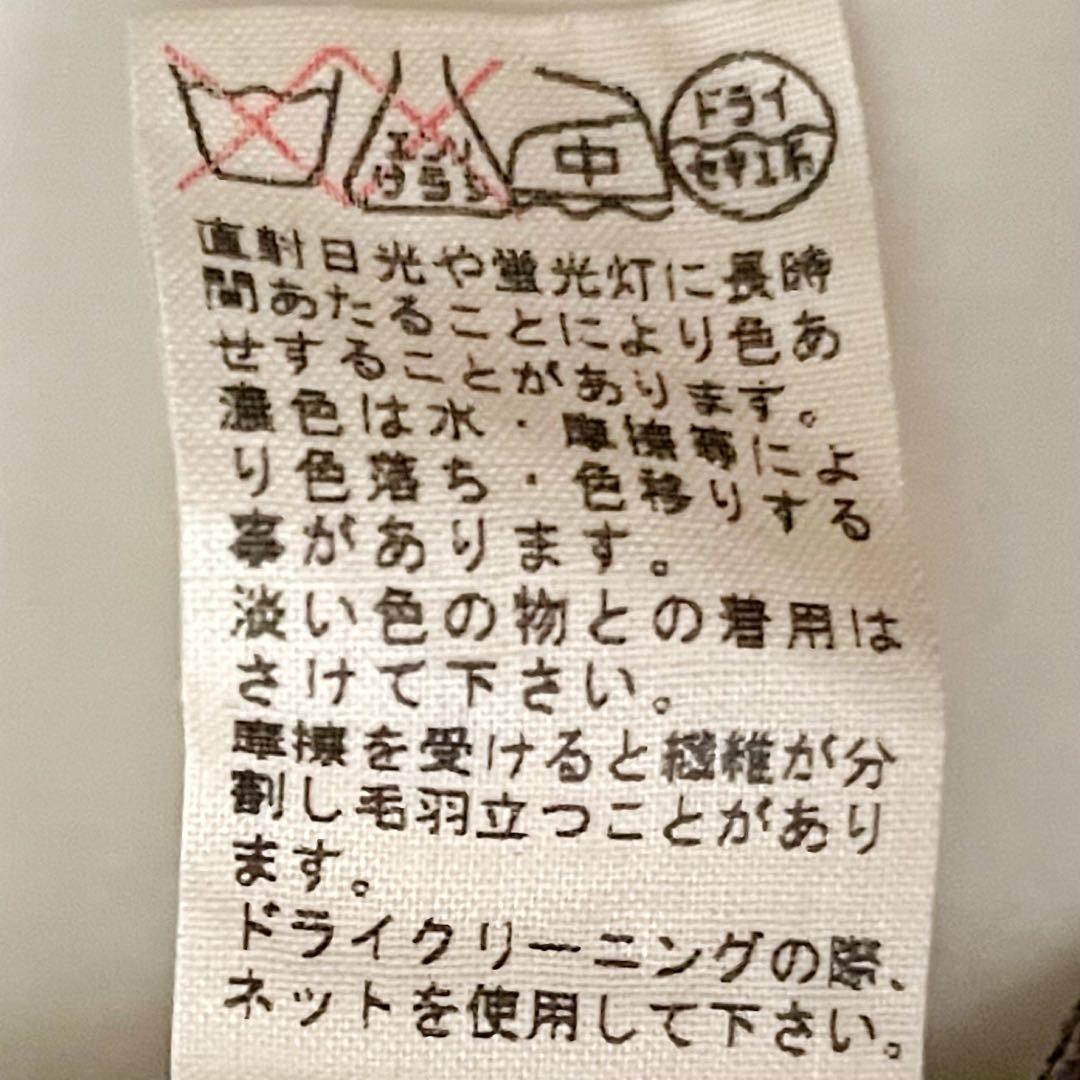 エンソ
サラシ
中
ドライ
セキユ系
直射日光や蛍光灯に長時
間あたることにより色あ
せすることがあります。
濃色は水・摩擦等によ
り色落ち・色移りする
事があります。
淡い色の物との着用は
さけて下さい。
摩擦を受けると繊維が分
割し毛羽立つことがあり
ます。
ドライクリーニングの際、
ネットを使用して下さい。